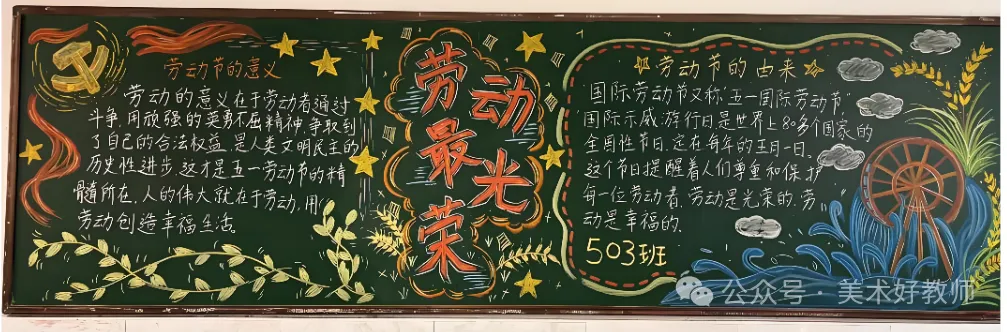 劳动节的意义
劳动的意义在于劳动者通过
斗争,用顽强的英勇不屈精神,争取到
了自己的合法权益,是人类文明民主的
历史性进步,这才是五一劳动节的精
髓所在,人的伟大就在于劳动,用
劳动创造幸福生活。
劳动
最光
荣
劳动节的由来
国际劳动节又称“五一国际劳动节”
国际示威游行日是世界上80多个国家的
全国性节日,定在每年的五月一日。
这个节日提醒着人们尊重和保护
每一位劳动者,劳动是光荣的,劳
动是幸福的.
503班
公众号·美术好教师